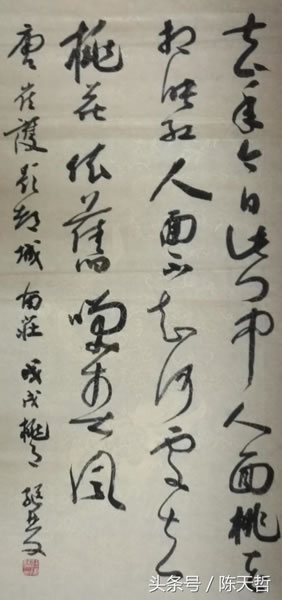 去年今日此门中人面桃花
相映红人面不知何处去
桃花依舊咲春風
唐崔護题都城南莊 戊戌桃月
头条号 / 陈天哲